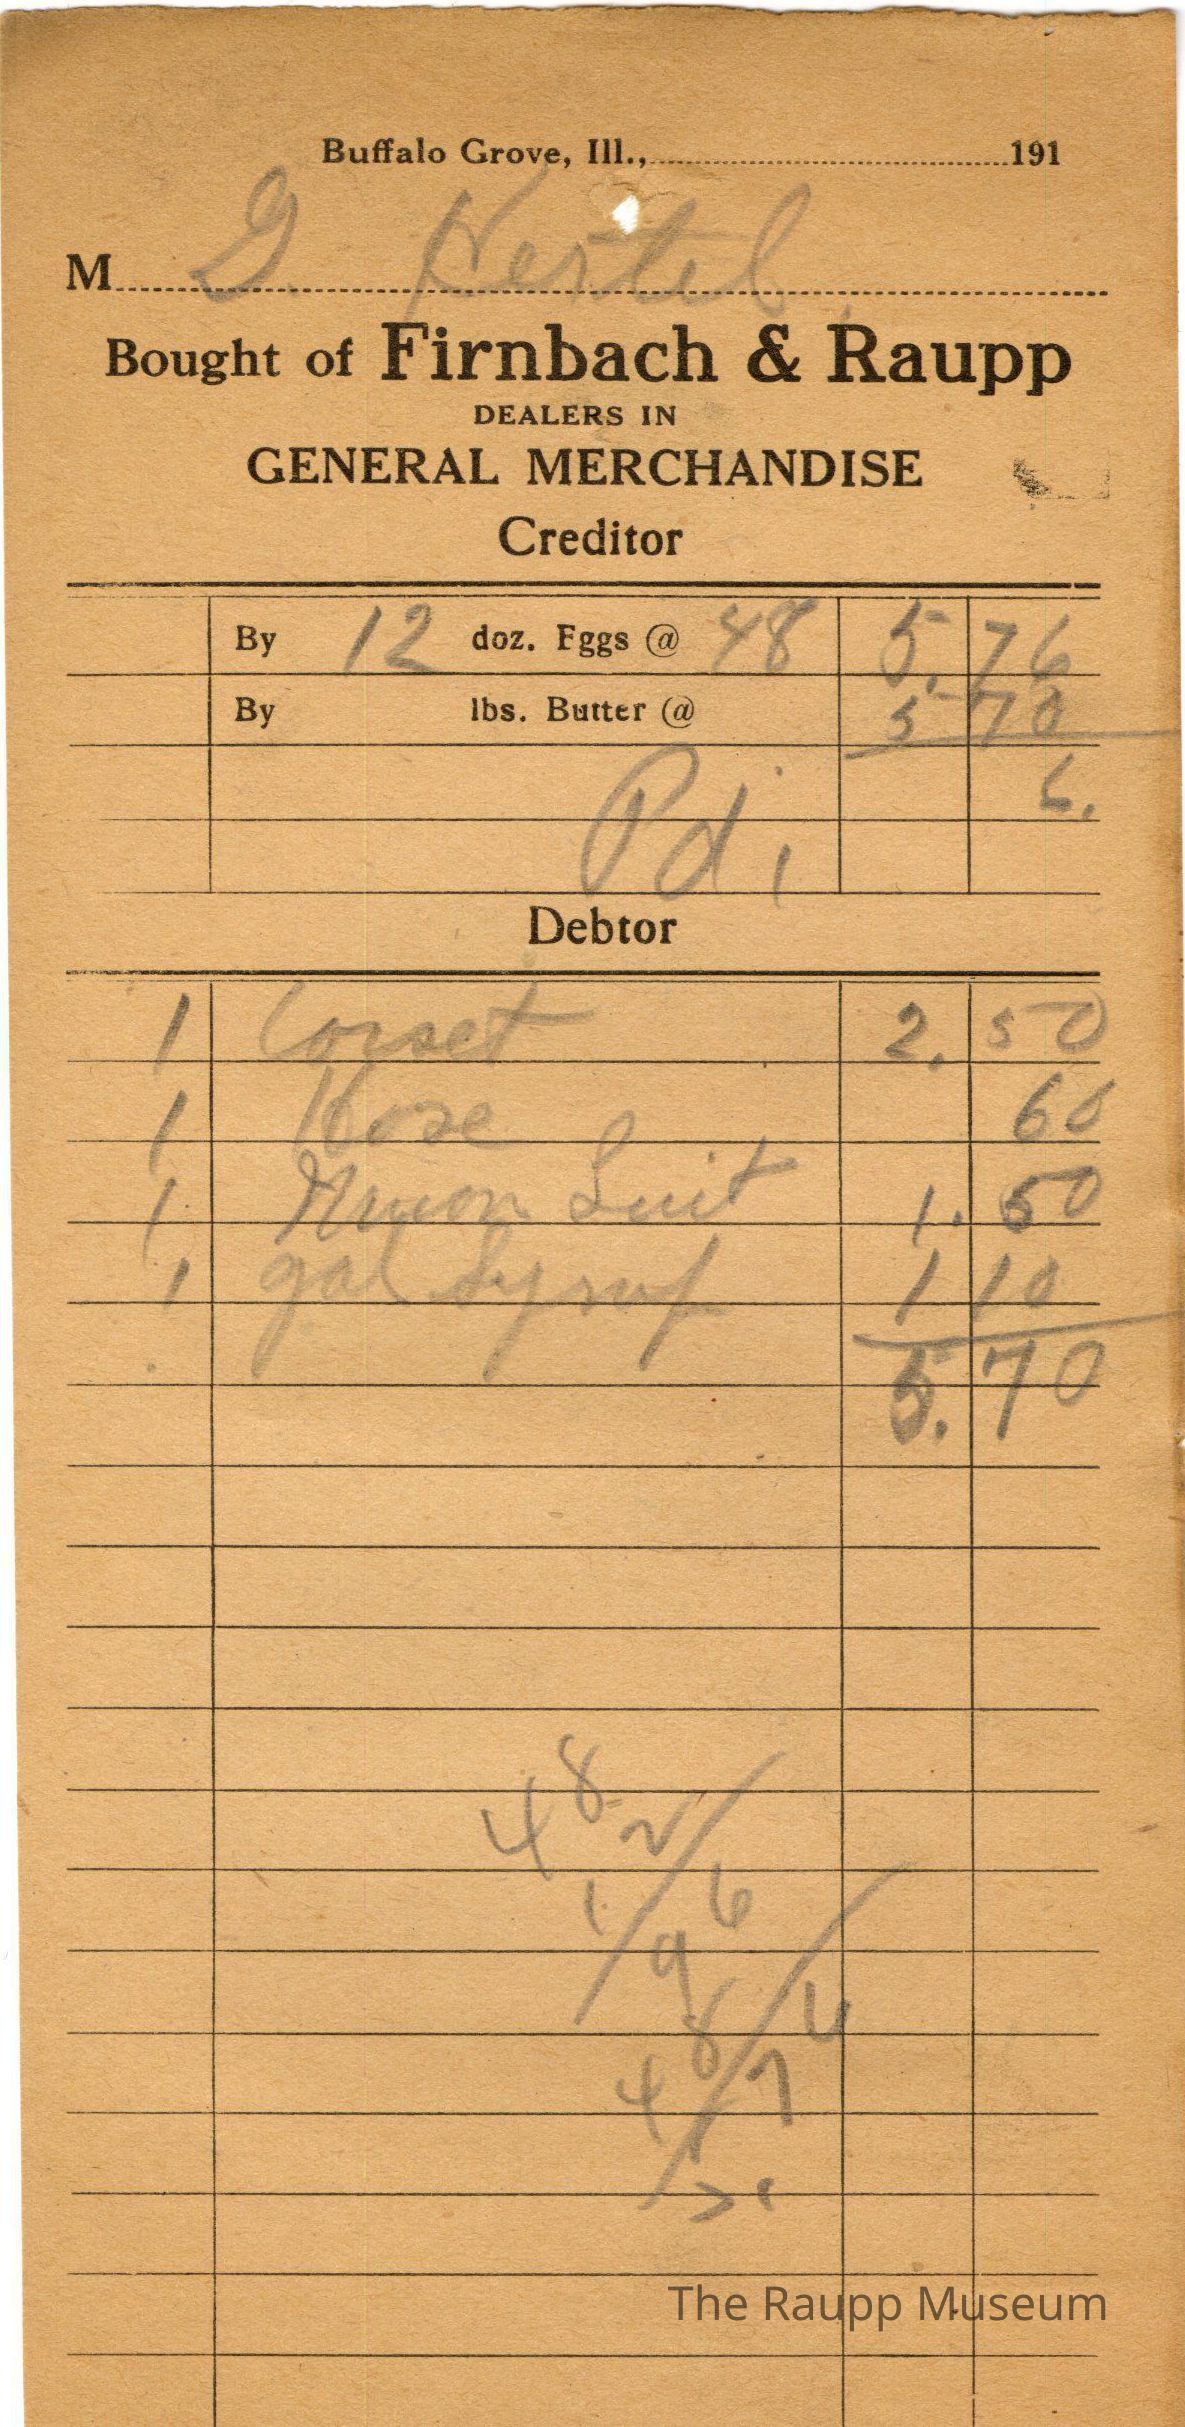 Buffalo Grove, Ill., 191
M G. Kestel
Bought of Firnbach & Raupp
DEALERS IN
GENERAL MERCHANDISE
Creditor
By 12 doz. Eggs @ 48 5.76
By lbs. Butter @ 5 70
6.
Pd.
Debtor
1 Corset 2.50
1 Hose 60
1 Union Suit 1.50
1 gal Syrup 1 10
5.70
48
12
96
48
The Raupp Museum